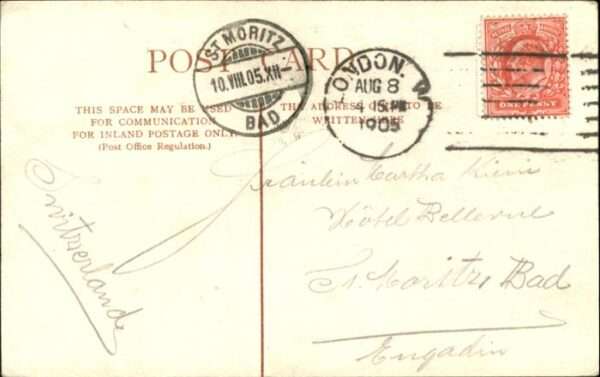 POST CARD
ST MORITZ
10.VIII.05.XII-
BAD
THIS SPACE MAY BE USED
FOR COMMUNICATION
FOR INLAND POSTAGE ONLY
(Post Office Regulation.)
THE ADDRESS ONLY TO BE
WRITTEN HERE
LONDON.
AUG 8
4 15 PM
1905
ONE PENNY
Switzerland
Fräulein Martha
Hôtel Bellevue
St. Moritz Bad
Engadin